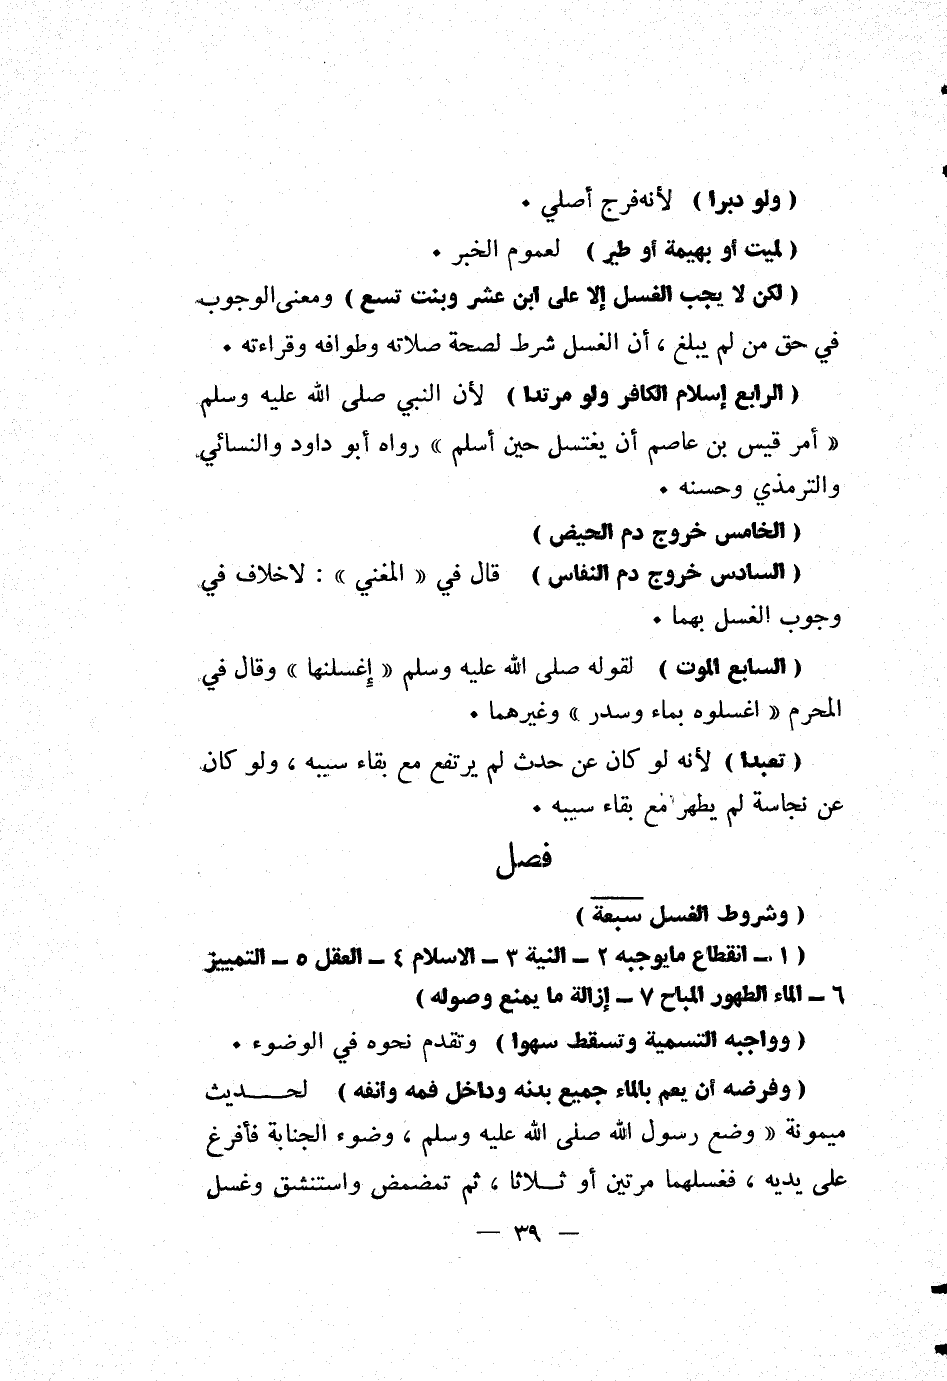 ( ولو دبرا ) لأنه فرج أصلي .
( لميت أو بهيمة أو طير ) لعموم الخبر .
( لكن لا يجب الغسل إلا على ابن عشر وبنت تسع ) ومعنى الوجوب
في حق من لم يبلغ ، أن الغسل شرط لصحة صلاته وطوافه وقراءته .
( الرابع إسلام الكافر ولو مرتدا ) لأن النبي صلى الله عليه وسلم
« أمر قيس بن عاصم أن يغتسل حين أسلم » رواه أبو داود والنسائي
والترمذي وحسنه .
( الخامس خروج دم الحيض )
( السادس خروج دم النفاس ) قال في « المغني » : لاخلاف في
وجوب الغسل بهما .
( السابع الموت ) لقوله صلى الله عليه وسلم « إغسلنها » وقال في
المحرم « اغسلوه بماء وسدر » وغيرهما .
( تعبدا ) لأنه لو كان عن حدث لم يرتفع مع بقاء سببه ، ولو كان
عن نجاسة لم يطهر مع بقاء سببه .
فصل
( وشروط الغسل سبعة )
( ١ ـ انقطاع مايوجبه ٢ ـ النية ٣ ـ الاسلام ٤ ـ العقل ٥ ـ التمييز
٦ ـ الماء الطهور المباح ٧ ـ إزالة ما يمنع وصوله )
( وواجبه التسمية وتسقط سهوا ) وتقدم نحوه في الوضوء .
( وفرضه أن يعم بالماء جميع بدنه وداخل فمه وأنفه ) لحـــديث
ميمونة « وضع رسول الله صلى الله عليه وسلم ، وضوء الجنابة فأفرغ
على يديه ، فغسلهما مرتين أو ثـــلاثا ، ثم تمضمض واستنشق وغسل
— ٣٩ —